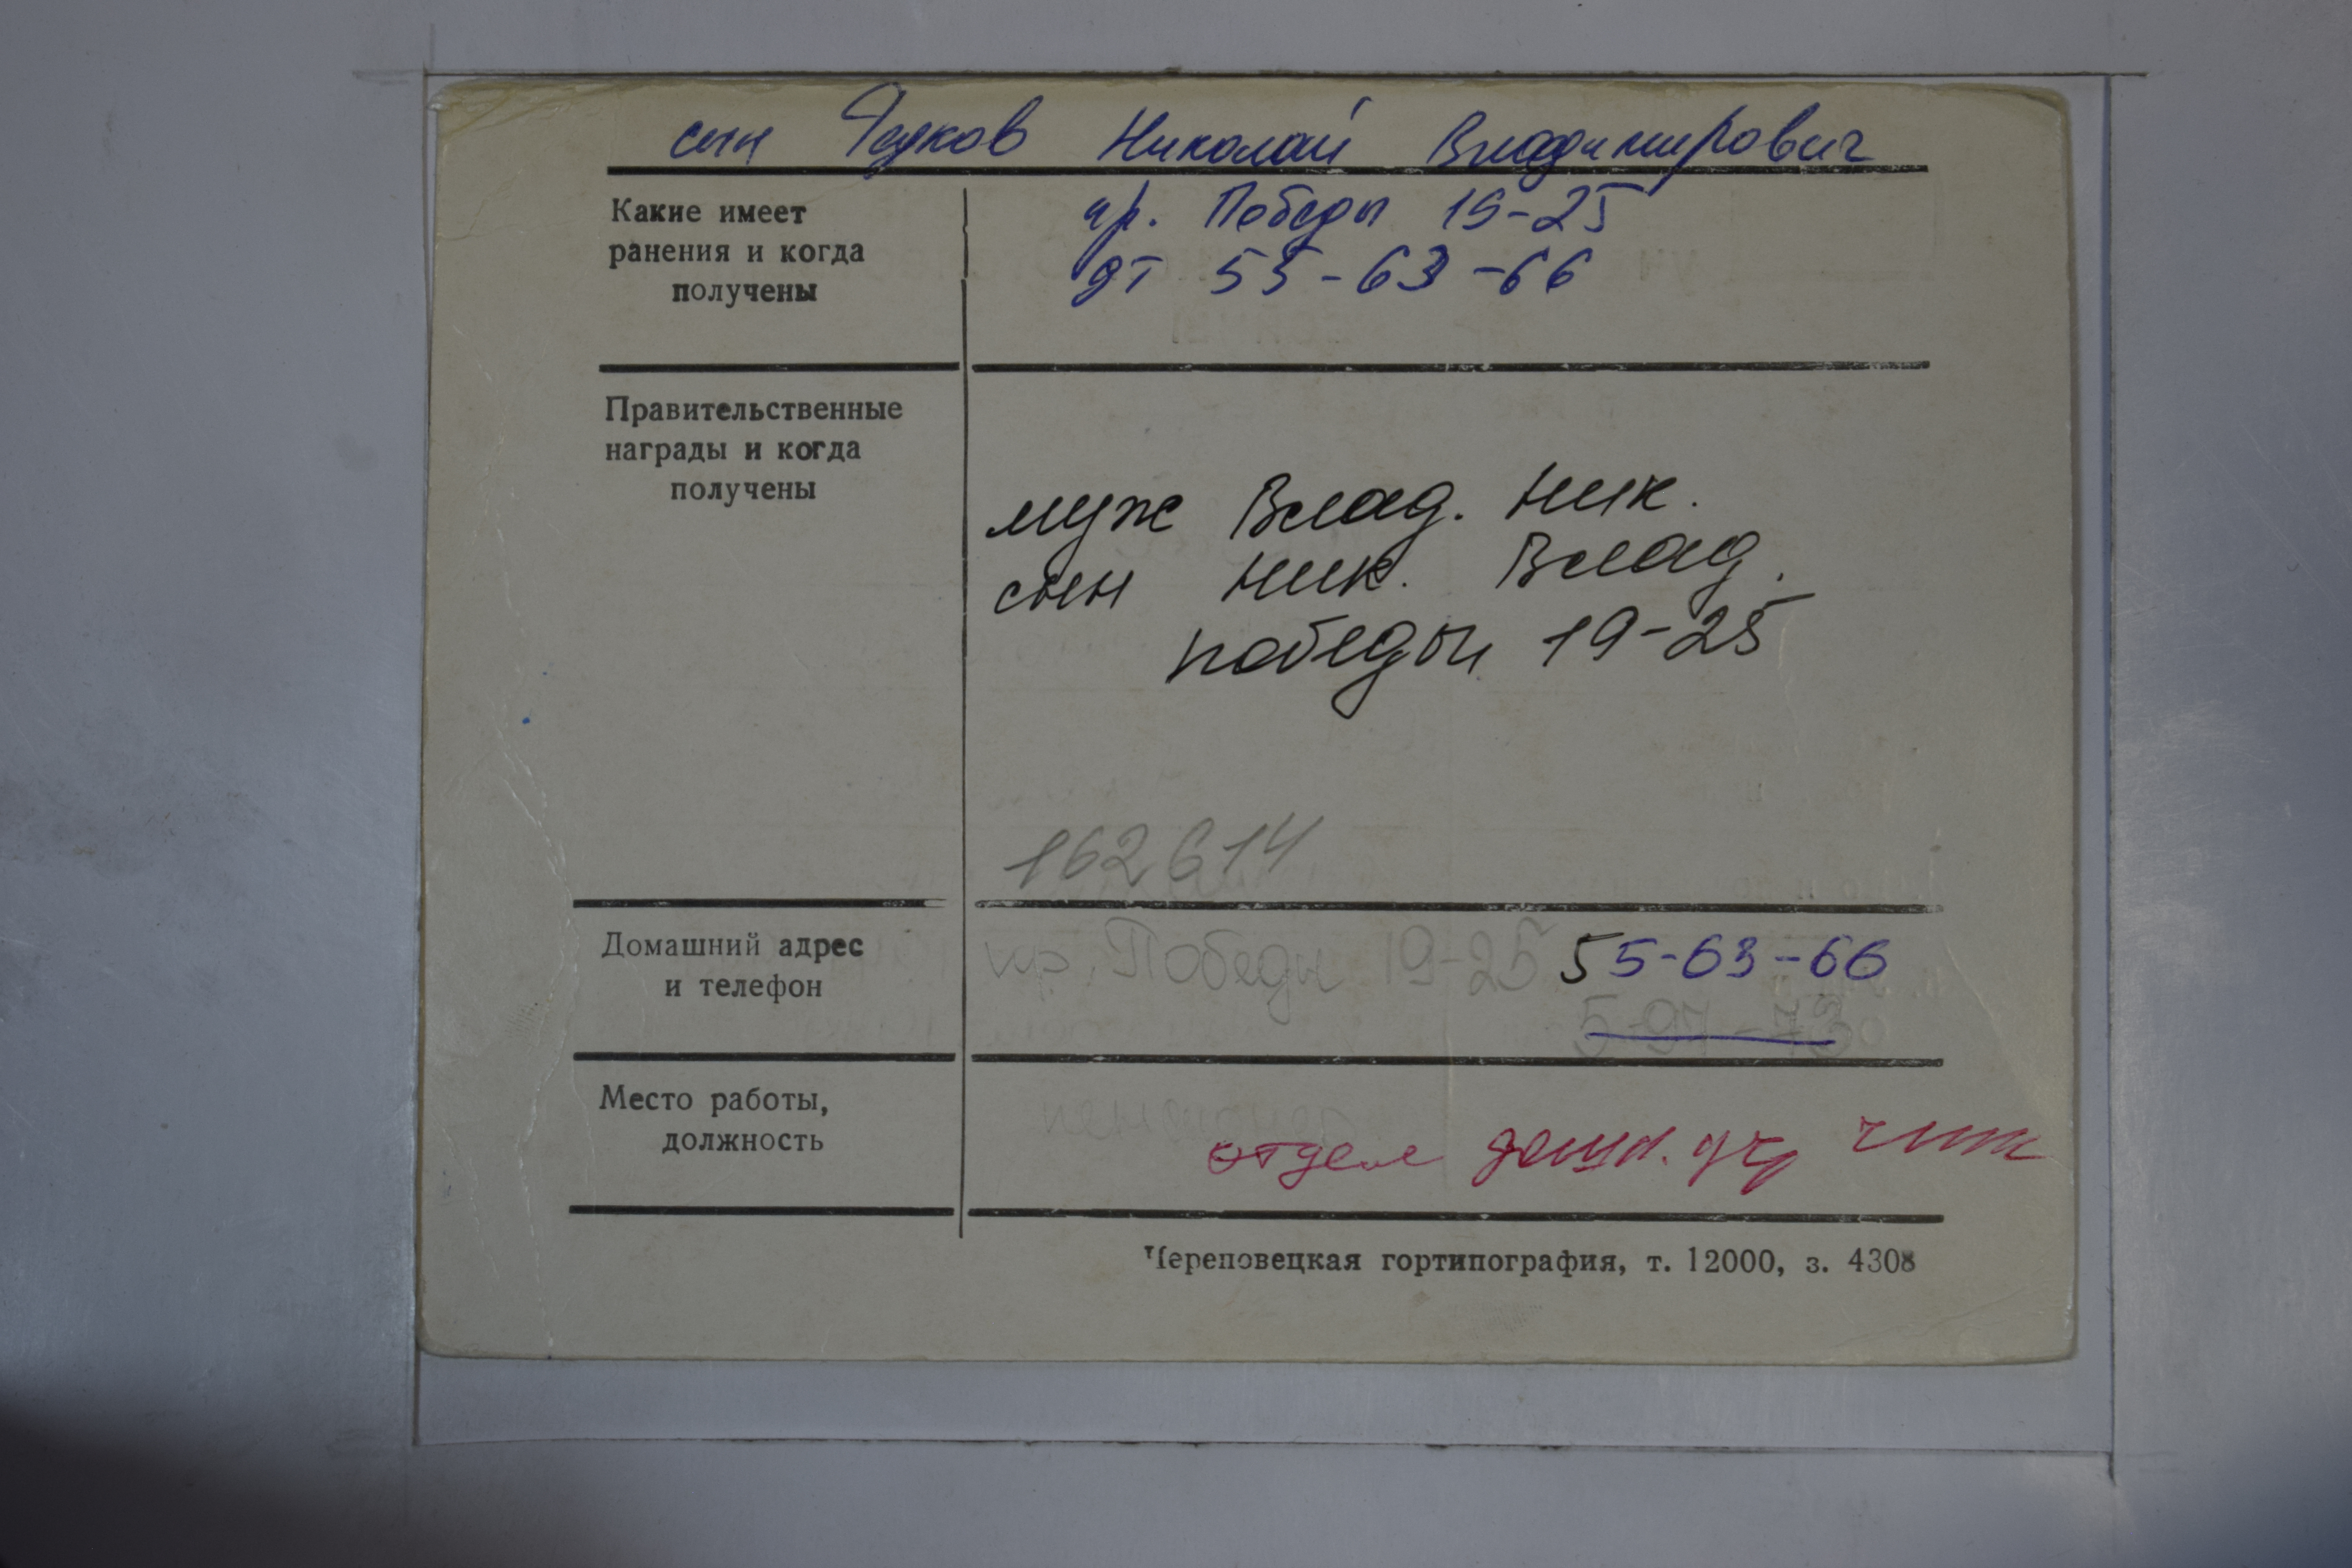 сын Николай Владимирович
Какие имеет
ранения и когда
получены
пр. Победы 19-25
дт 55-63-66
Правительственные
награды и когда
получены
муж Влад. Ник.
сын Ник. Влад.
победы 19-25
162614
Домашний адрес
и телефон
пр. Победы 19-25 55-63-66
5-97-73
Место работы,
должность
пенсионер
отдел дошк. учр
Череповецкая гортипография, т. 12000, з. 4308